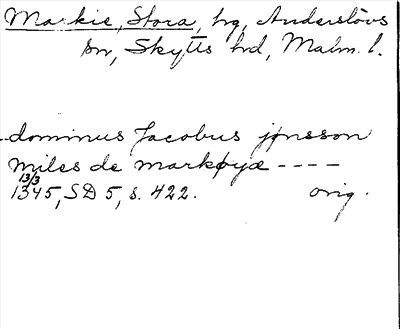 Markie, Stora, hg, Anderslövs
sn, Skytts hd, Malm. l.
dominus Jacobus jønsson
miles de markøyæ ----
13/3
1345, SD 5, s. 422. orig.